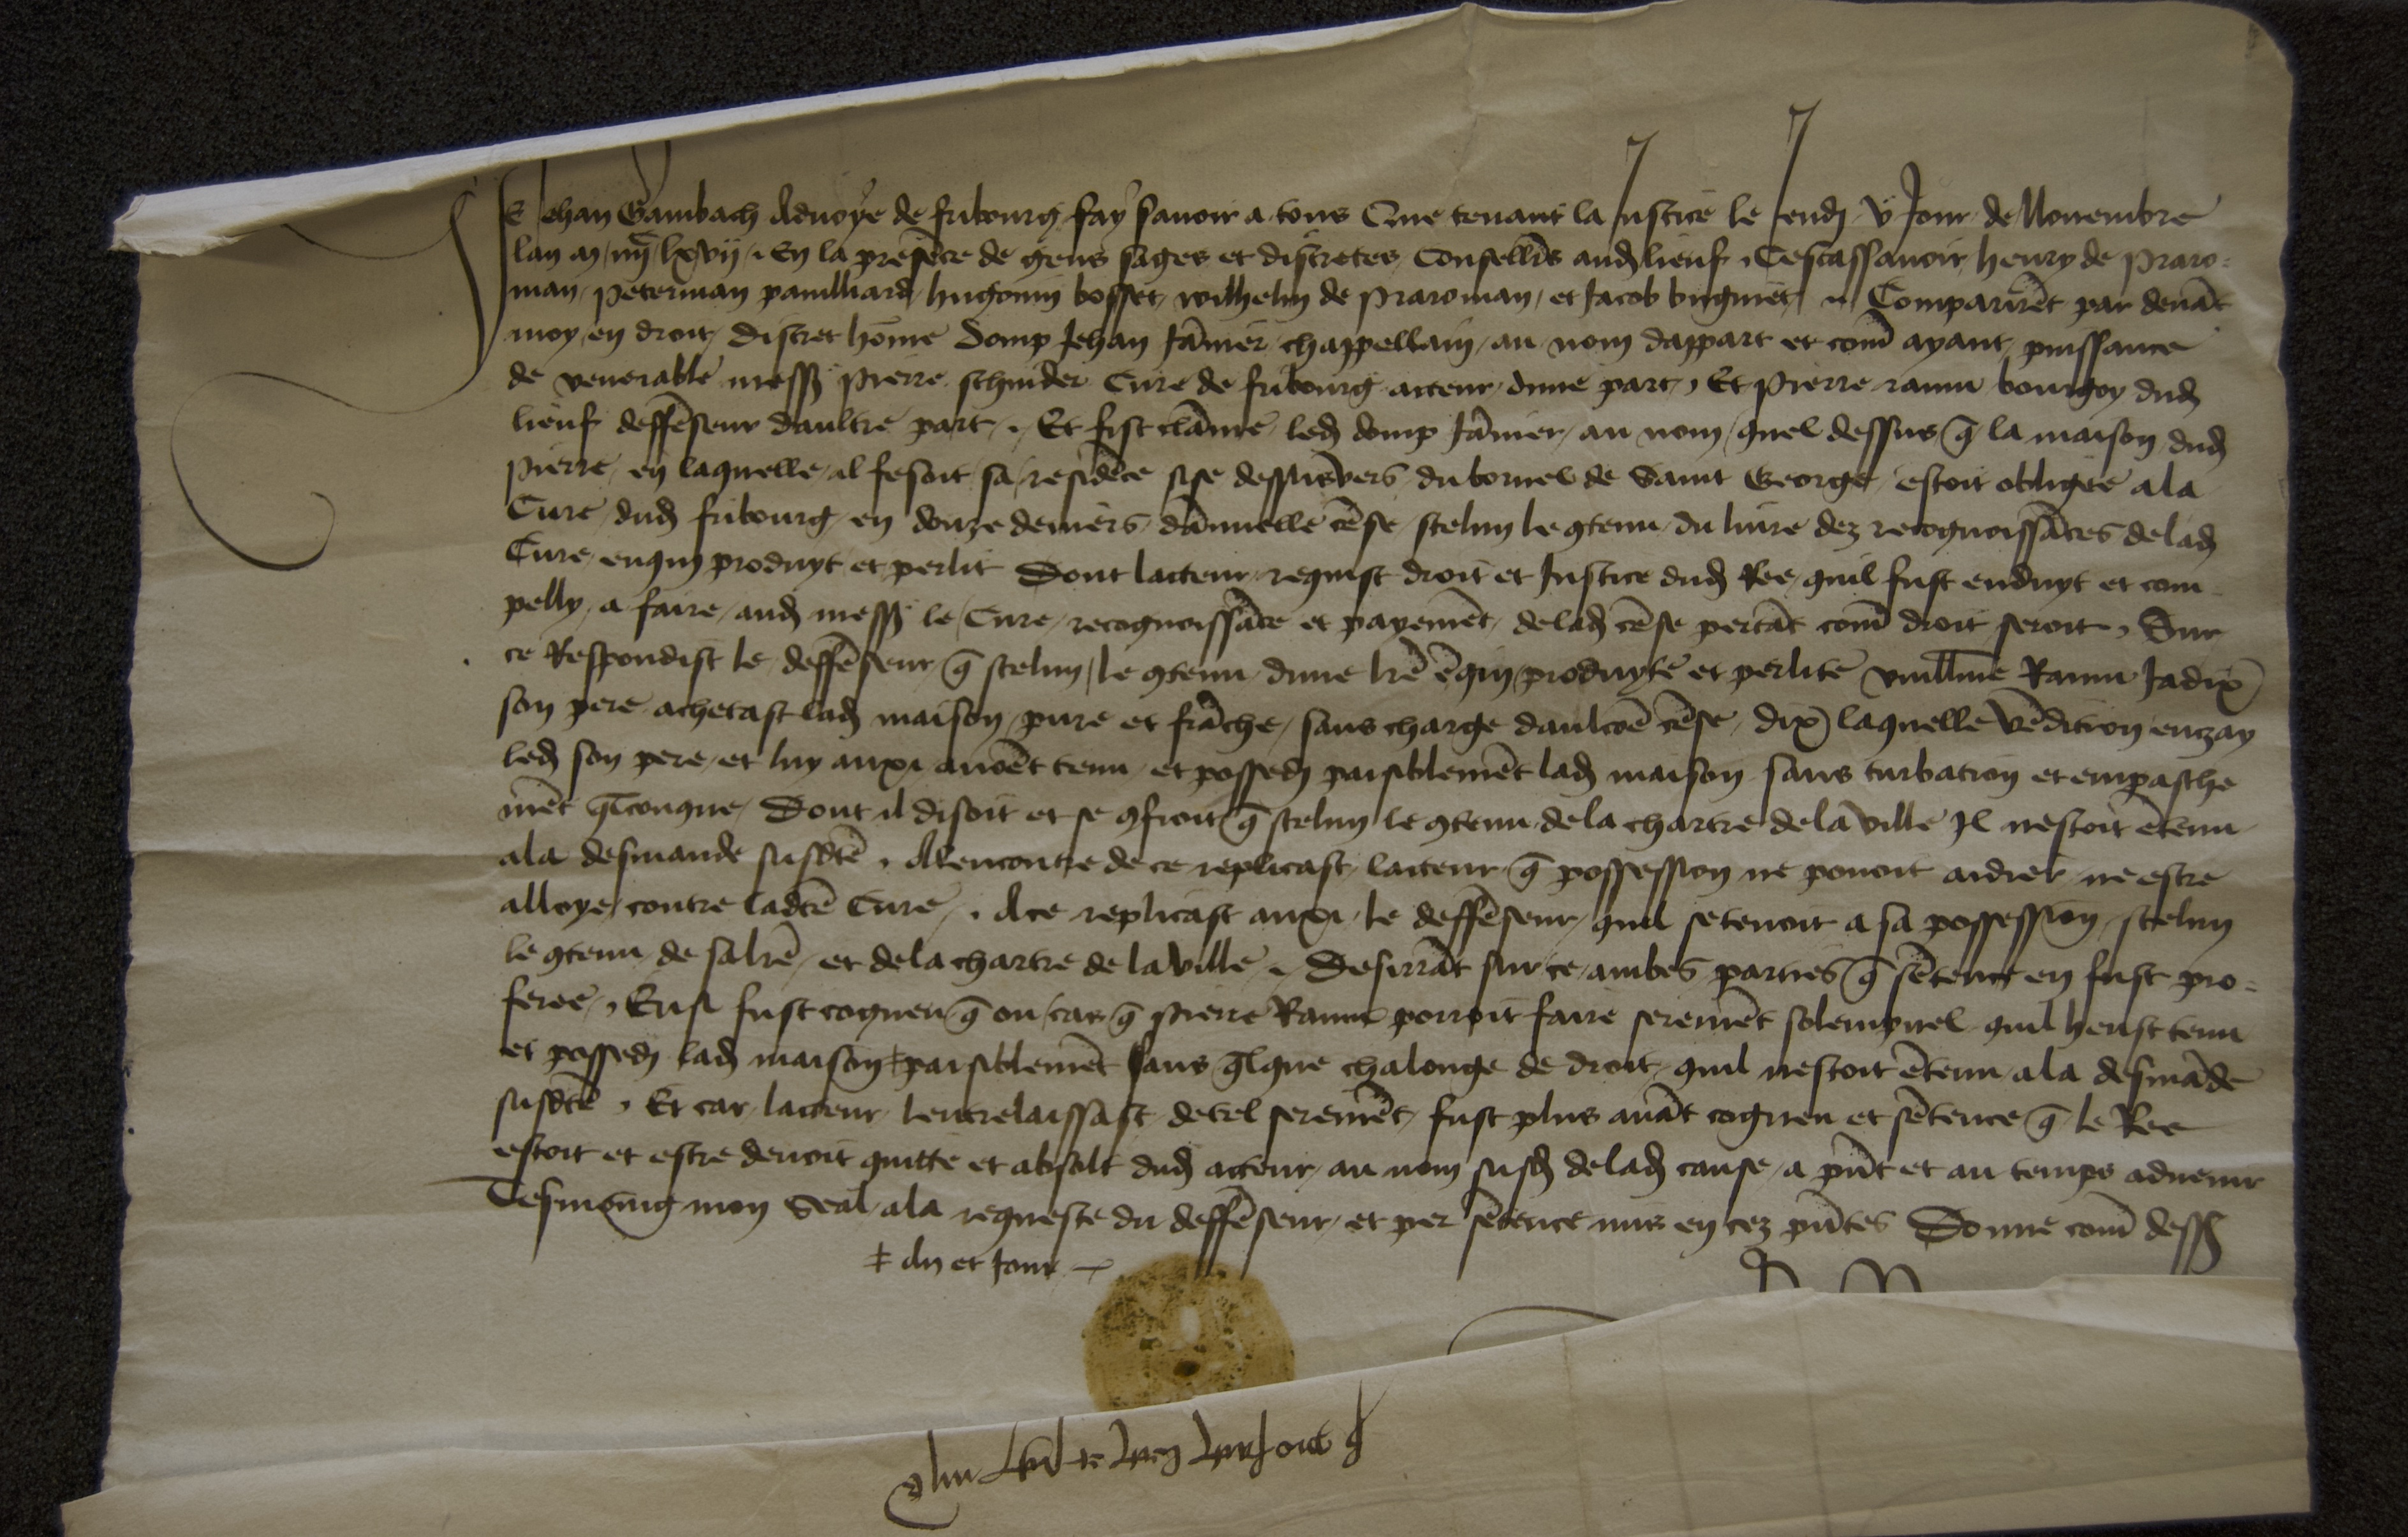 Je Jehan Gambach Advoye de fribourg fay savoir a tous Que tenant la Justice le Jeudj v Jour de Novembre
lan m iiijᶜ lxvij . En la presēce de gens sages et discretes Consellrs aud lieuf , Cestassavoir henry de Praro=
man , Peterman pavilliard , hugonin bosset , wilhelm de Praroman , et Jacob bugniet , Comparirēt par devāt
moy en droit , discret hōme Domp Jehan Jāmer chappellain , au nom dappart et com̄ ayant puissance
de venerable mess Pierre schnider Cure de fribourg acteur , dune part , Et Pierre ramu bourgoy dud
lieuf deffēseur daultre part , Et fist clāme led domp Jāmer , au nom quel dessus q̄ la maison dud
Pierre , en laquelle , il fesoit sa residēce sise dessusvers du bornel de Saint George , estoit obligee a la
Cure , dud fribourg , en douze deniers dānuelle cēse , stelung le 9tenu , du livre dez recognoissāces de lad
Cure , enqui produyt et perlit Dont lacteur requist droit et Justice dud Ree , quil fust enduyt et com
pelly , a faire , aud mess le Cure , recognoissāce et payemēt , de lad cēse pertāt com̄ droit seroit , Sur
ce Respondist le deffēseur q̄ stelung le 9tenu dune lrē ēqui produyte et perlite vuillme Ramu Jadix
son pere achetast lad maison , pure et frāche , sans charge daulcōe cēse , dix laquelle vēdicion enczay
led son pere , et luy auxi avoēt tenu , et possedj paisiblemēt lad maison sans turbation et empasche
mēt q̄lconque , Dont il disoit et se 9fioit q̄ stelung le 9tenu de la chartre de la ville Jl nestoit ētenu
a la desmande susdtē , Alencontre de ce replicast , lacteur q̄ possession ne povoit aidier , ne estre
alloye contre ladtē Cure , A ce replicast auxi , le deffēseur , quil se tenoit a sa possession , stelung
le 9tenu , de sa lrē , et de la chartre de la ville , Desirrāt sur ce , ambes parties q̄ sētence en fust pro=
feree , Ensi fust cogneu q̄ ou cas q̄ Pierre Ramu porroit faire seremēt solempnel quil heust tenu
et possedj lad maison ‡ paisiblemēt sans q̄lque chalonge de droit , quil nestoit ētenu a la desmāde
susdtē , Et car , lacteur , lentrelaissast , de tel seremēt , fust plus avāt cogneu et sētence q̄ le Ree
estoit et estre devoit quitte et absolt dud acteur , au nom susd de lad cause , a pn̄t et au temps advenir
Tesmoing mon Seal , a la requeste du deffēseur , et per sētence mis en cez pn̄tes Donne com̄ dess
‡ An et Jour